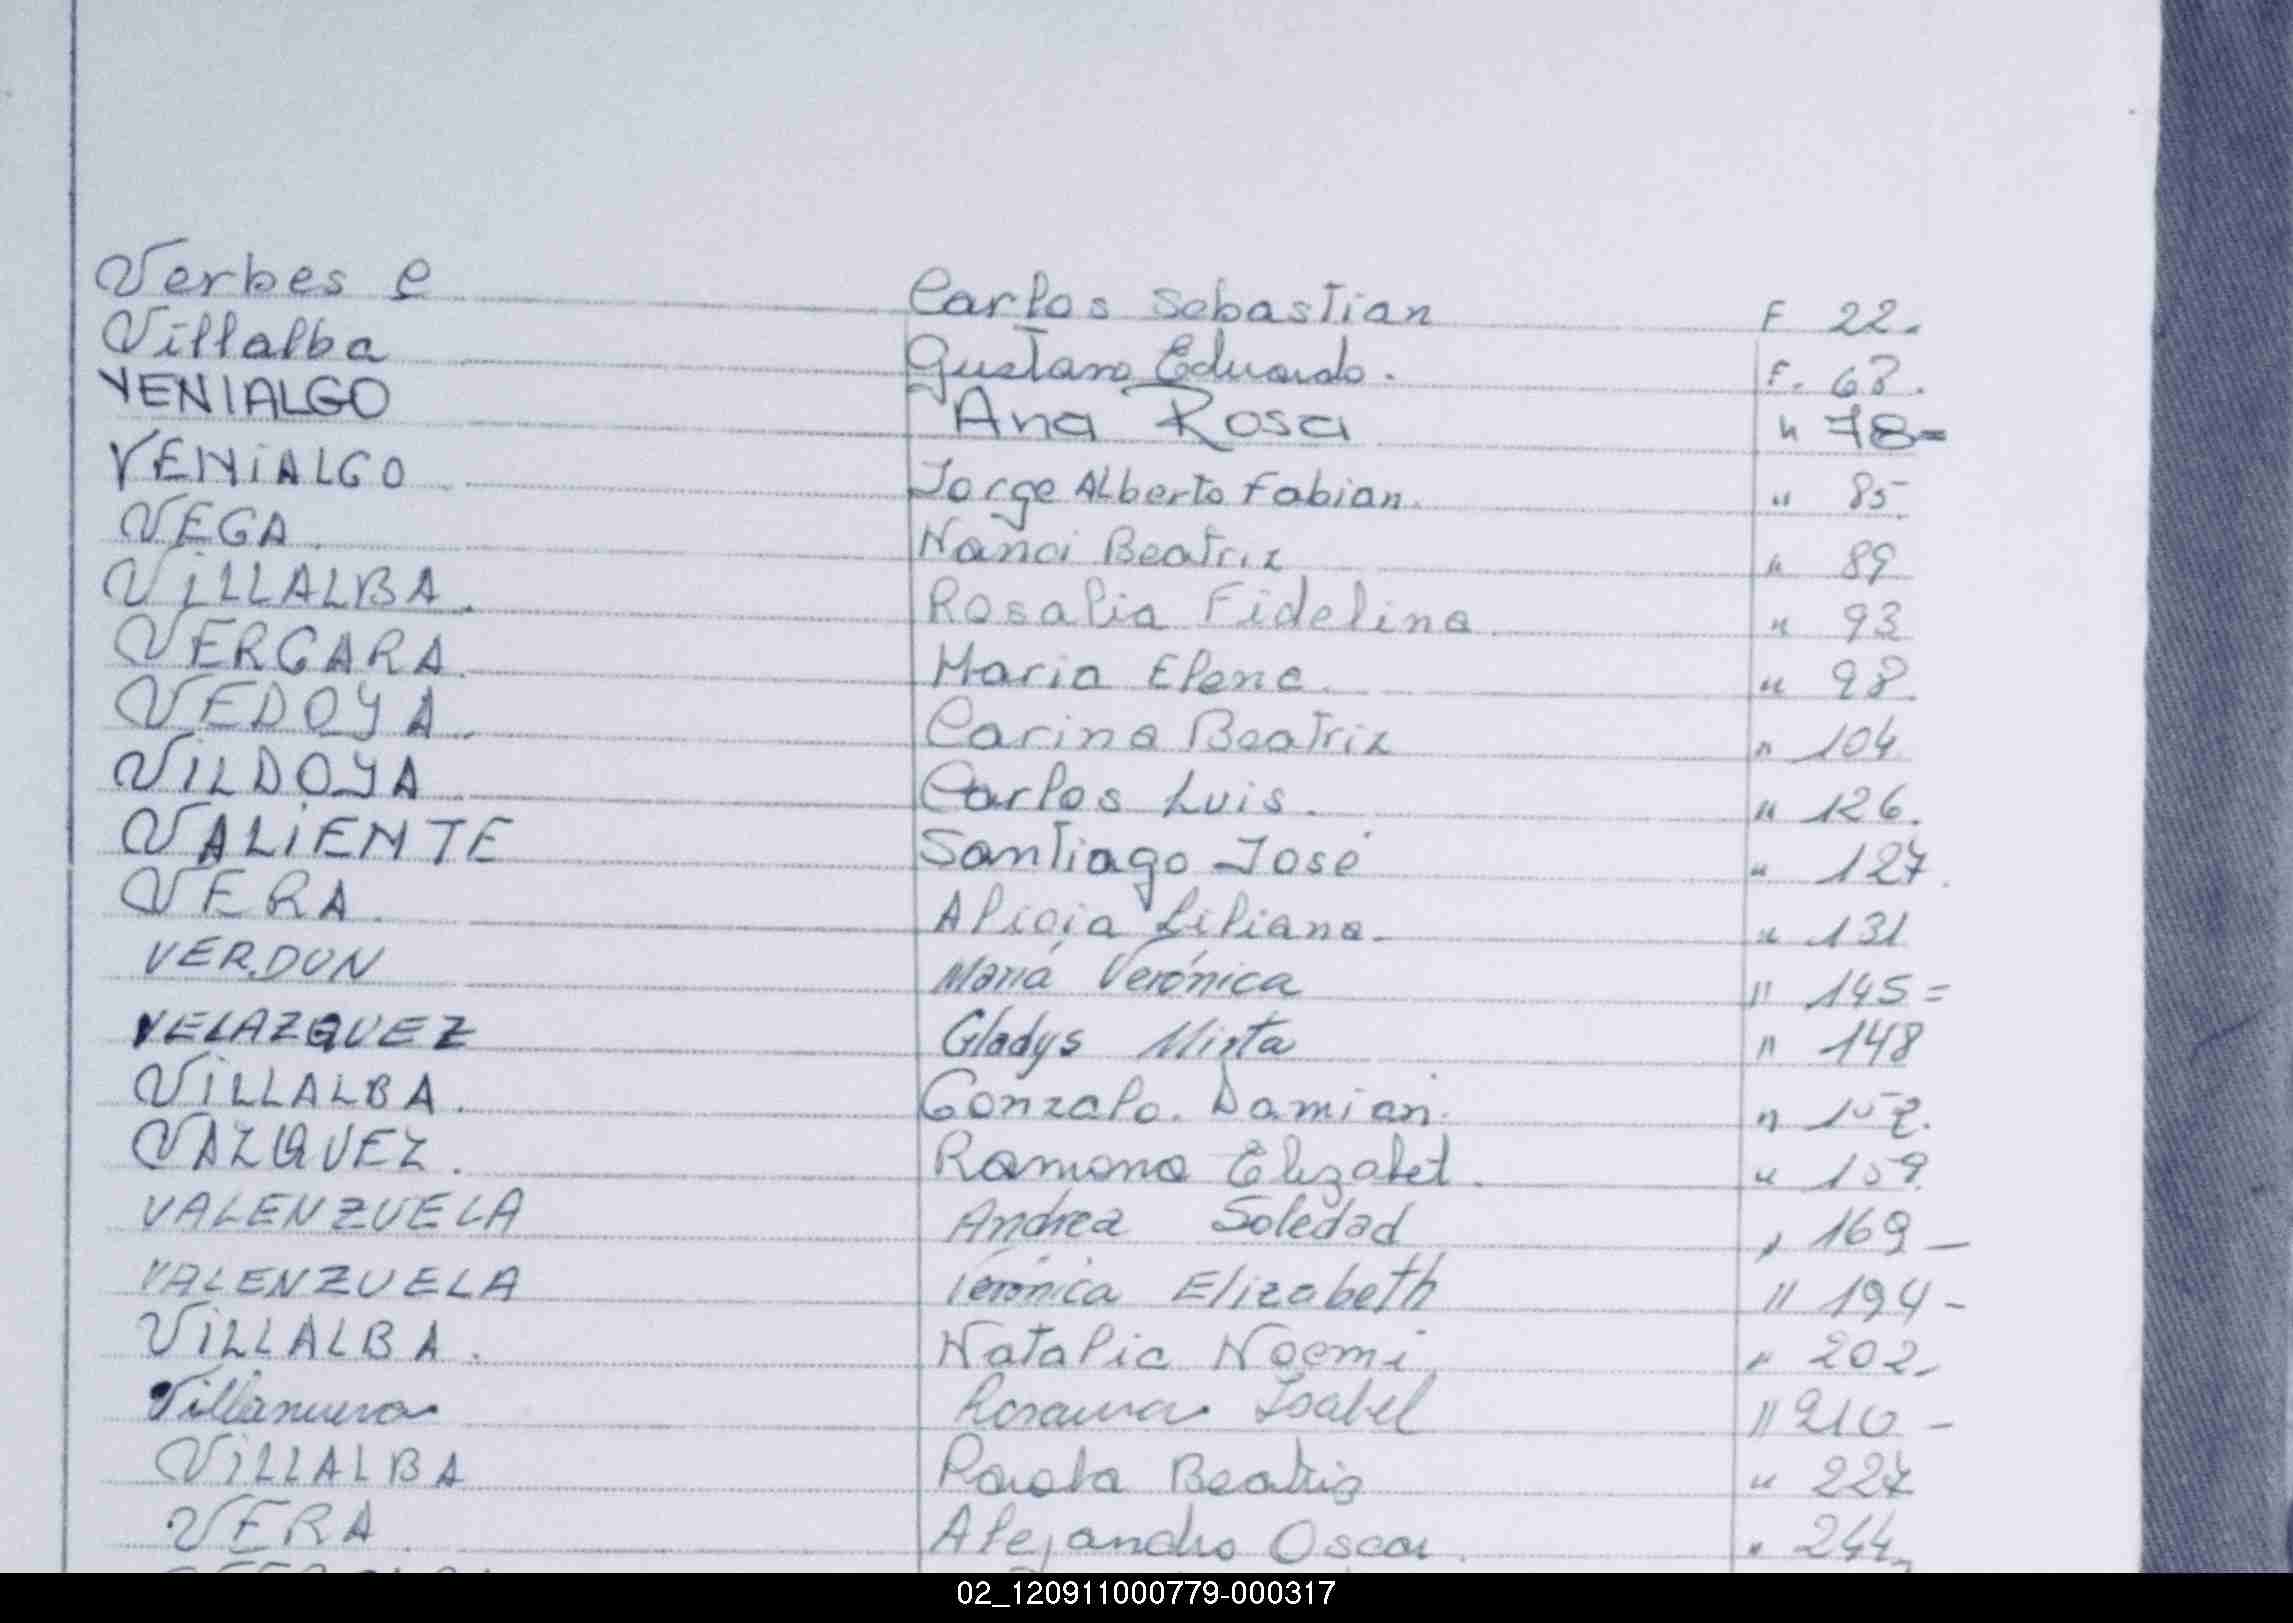 Verbes e Carlos Sebastian F 22.
Villalba Gustavo Eduardo. F. 68.
VENIALGO Ana Rosa " 78=
VENIALGO Jorge Alberto Fabian. " 85.
VEGA. Nanci Beatriz " 89
VILLALBA. Rosalia Fidelina " 93
VERGARA. Maria Elena. " 98.
VEDOYA. Carina Beatriz " 104
VILDOYA Carlos Luis. " 126.
VALIENTE Santiago José " 127.
VERA. Alicia Liliana. " 131
VERDON María Verónica " 145=
VELAZQUEZ Gladys Mirta " 148
VILLALBA. Gonzalo. Damian. " 152.
VAZQUEZ. Ramona Elizabet. " 159.
VALENZUELA Andrea Soledad " 169-
VALENZUELA Verónica Elizabeth " 194-
VILLALBA. Natalia Noemi " 202-
Villanueva Rosaura Isabel " 210-
VILLALBA Paola Beatriz " 227
VERA. Alejandro Oscar. " 244-
02_120911000779-000317